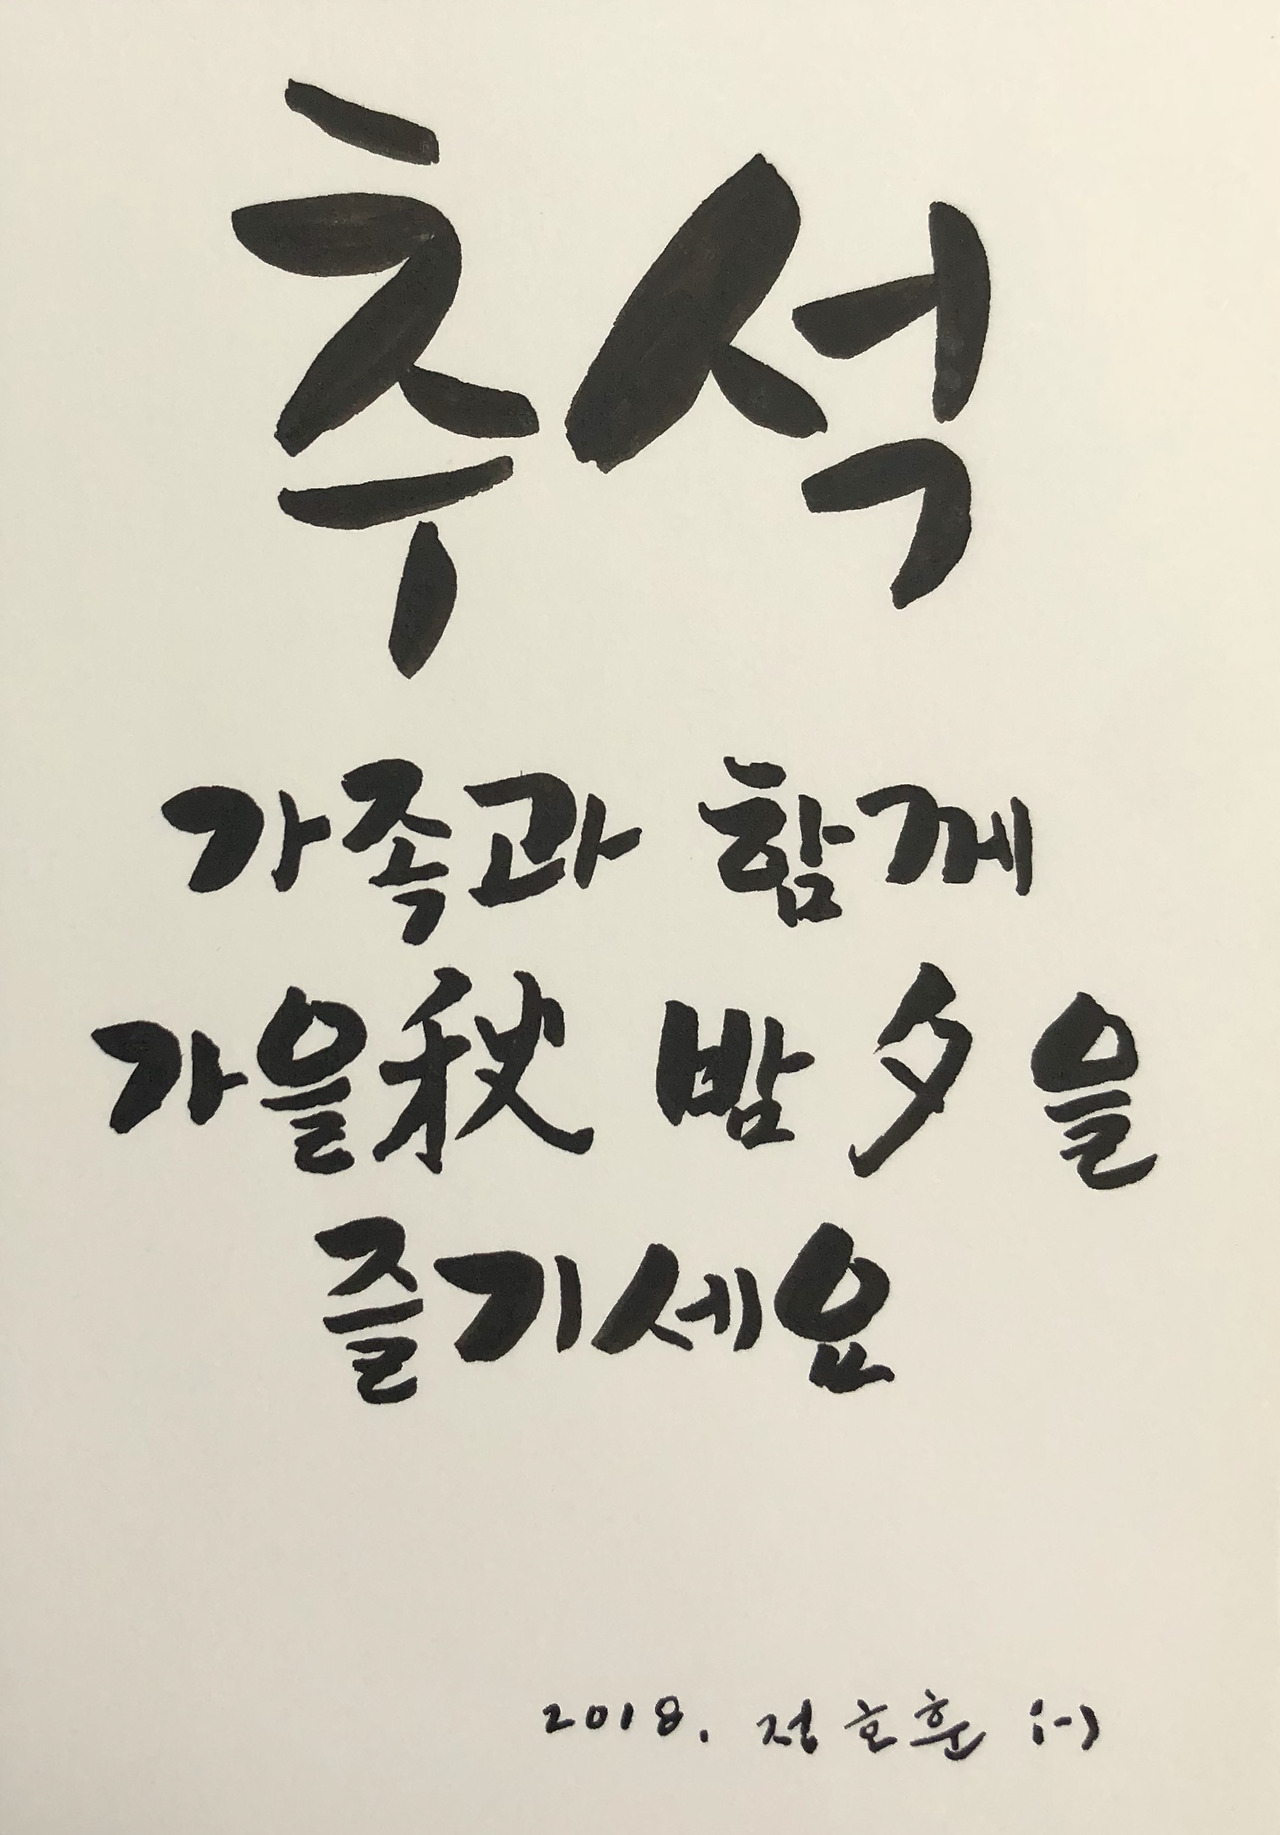 추석
가족과 함께
가을秋 밤夕을
즐기세요
2018. 정호훈 :-)